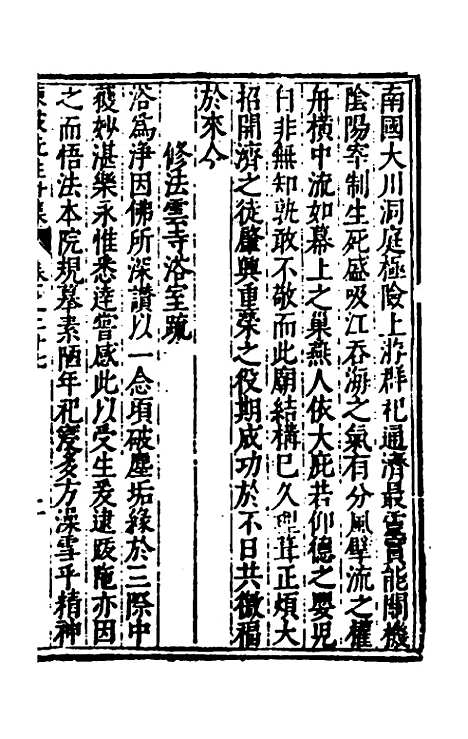 南國大川洞庭極險上游群祀通濟最靈實能關機
陰陽宰制生死盛吸江吞海之氣有分風擘流之權
舟橫中流如幕上之巢燕人依大庇若仰德之嬰児
自非無知孰敢不敬而此廟結構已久 茸正煩大
招開濟之徒肇興重榮之役期成功於不日共徼福
於來今
修法雲寺浴室䟽
浴為淨因佛所深讚以一念頃破塵垢緣於三際中
獲妙湛樂永惟悉達嘗感此以受生爰逮跋陁亦因
之而悟法本院規摹素陋年祀寖多方澡雪乎精神